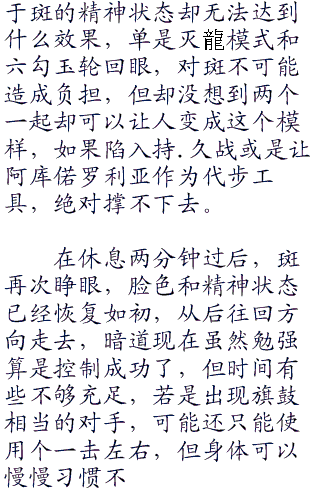 于斑的精神状态却无法达到
什么效果，单是灭龍模式和
六勾玉轮回眼，对斑不可能
造成负担，但却没想到两个
一起却可以让人变成这个模
样，如果陷入持.久战或是让
阿库偌罗利亚作为代步工
具，绝对撑不下去。
在休息两分钟过后，斑
再次睁眼，脸色和精神状态
已经恢复如初，从后往回方
向走去，暗道现在虽然勉强
算是控制成功了，但时间有
些不够充足，若是出现旗鼓
相当的对手，可能还只能使
用个一击左右，但身体可以
慢慢习惯不